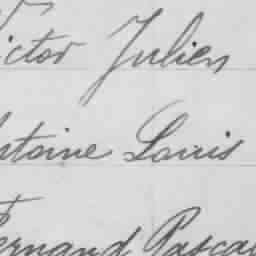 Victor Julien
Antoine Louis
Fernand Pascal